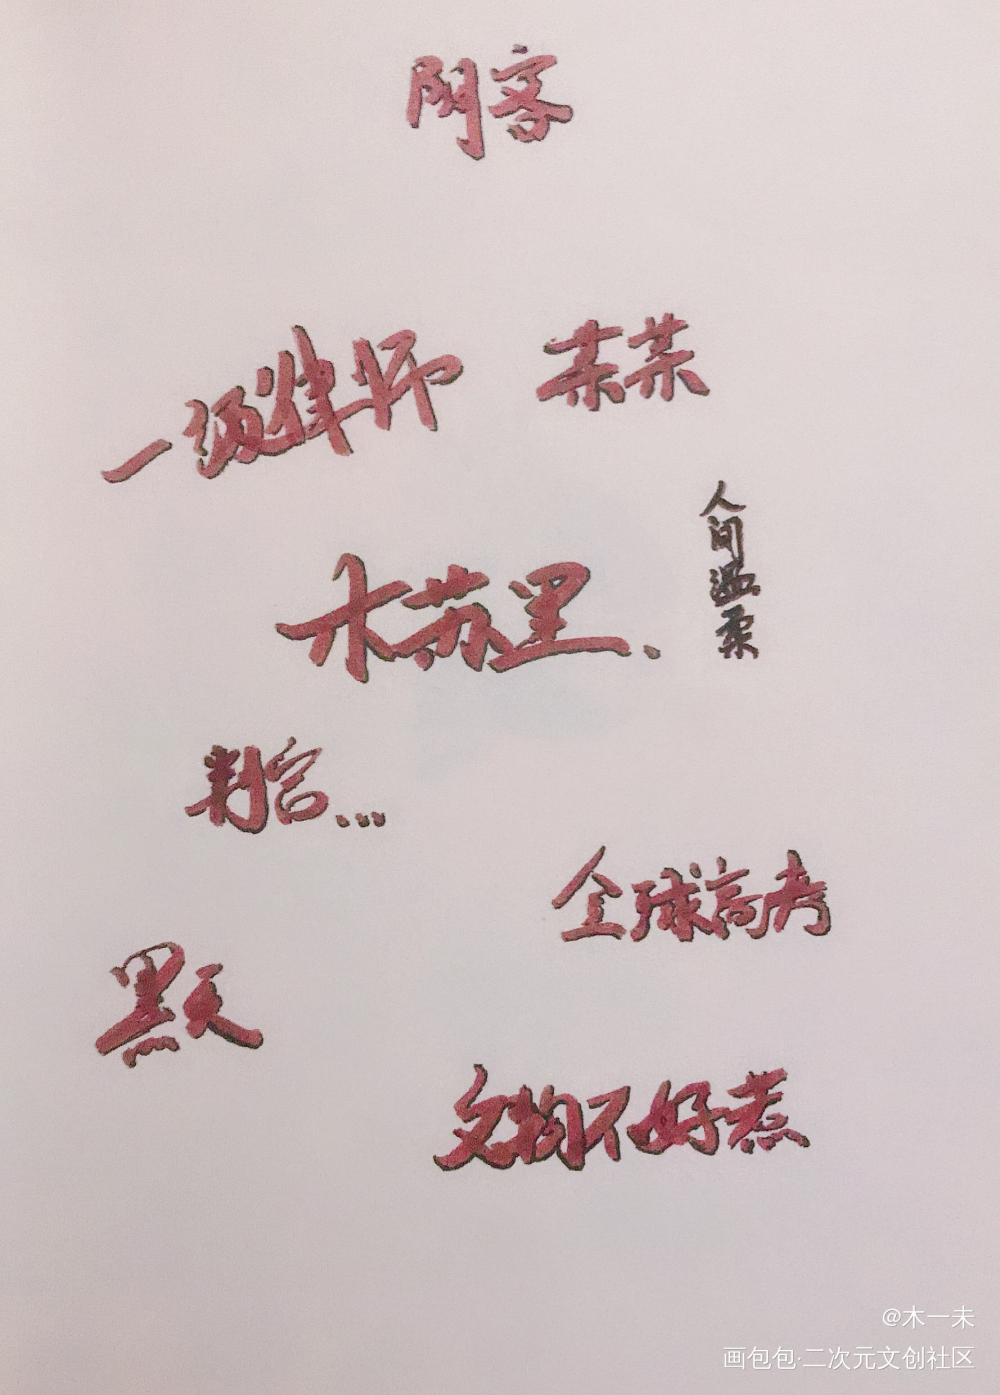 一级律师
木苏里、
人间温柔
判官...
全球高考
黑天
文物不好惹
@木一未
画包包·二次元文创社区